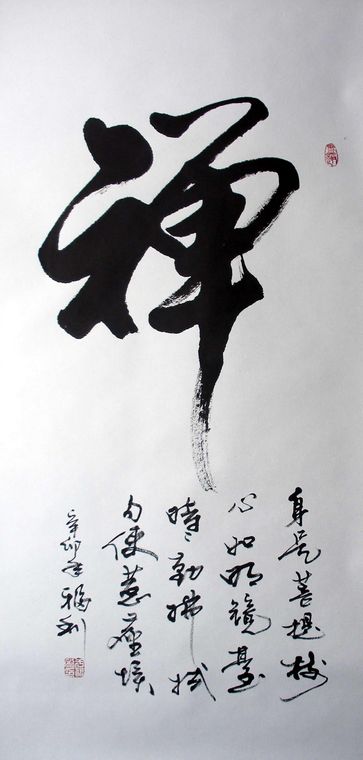 禅
身是菩提樹
心如明鏡臺
時々勤拂拭
勿使惹塵埃
辛卯年福利